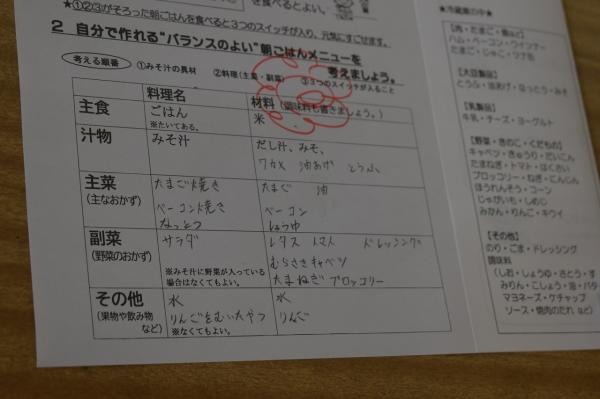 ★①②③がそろった朝ごはんを食べると3つのスイッチが入り、元気にすごせます。
を食べるとよい。
2 自分で作れる“バランスのよい”朝ごはんメニューを
考えましょう。
考える順番 ①みそ汁の具材 ②料理(主菜・副菜) ③3つのスイッチが入ること
料理名 材料(調味料も書きましょう。)
主食 ごはん 米
※たいてある。
汁物 みそ汁 だし汁、みそ、
ワカメ 油あげ とうふ
主菜 たまご焼き たまご 油
(主なおかず) ベーコン焼き ベーコン
なっとう しょうゆ
副菜 サラダ レタス トマト ドレッシング
(野菜のおかず) むらさきキャベツ
※みそ汁に野菜が入っている
場合はなくてもよい。 たまねぎ ブロッコリー
その他 水 水
(果物や飲み物 りんごをむいたやつ りんご
など) ※なくてもよい。
★冷蔵庫の中★
【肉・たまご・魚など】
ハム・ベーコン・ウインナー
たまご・じゃこ・ツナ缶
【大豆製品】
とうふ・油あげ・なっとう・みそ
【乳製品】
牛乳・チーズ・ヨーグルト
【野菜・きのこ・くだもの】
キャベツ・きゅうり・だいこん
たまねぎ・トマト・はくさい
ブロッコリー・ねぎ・にんじん
ほうれんそう・コーン
じゃがいも・しめじ
みかん・りんご・キウイ
【その他】
のり・ごま・ドレッシング
調味料
(しお・しょうゆ・さとう・す
みりん・こしょう・油・バター
マヨネーズ・ケチャップ
ソース・焼肉のたれ など)